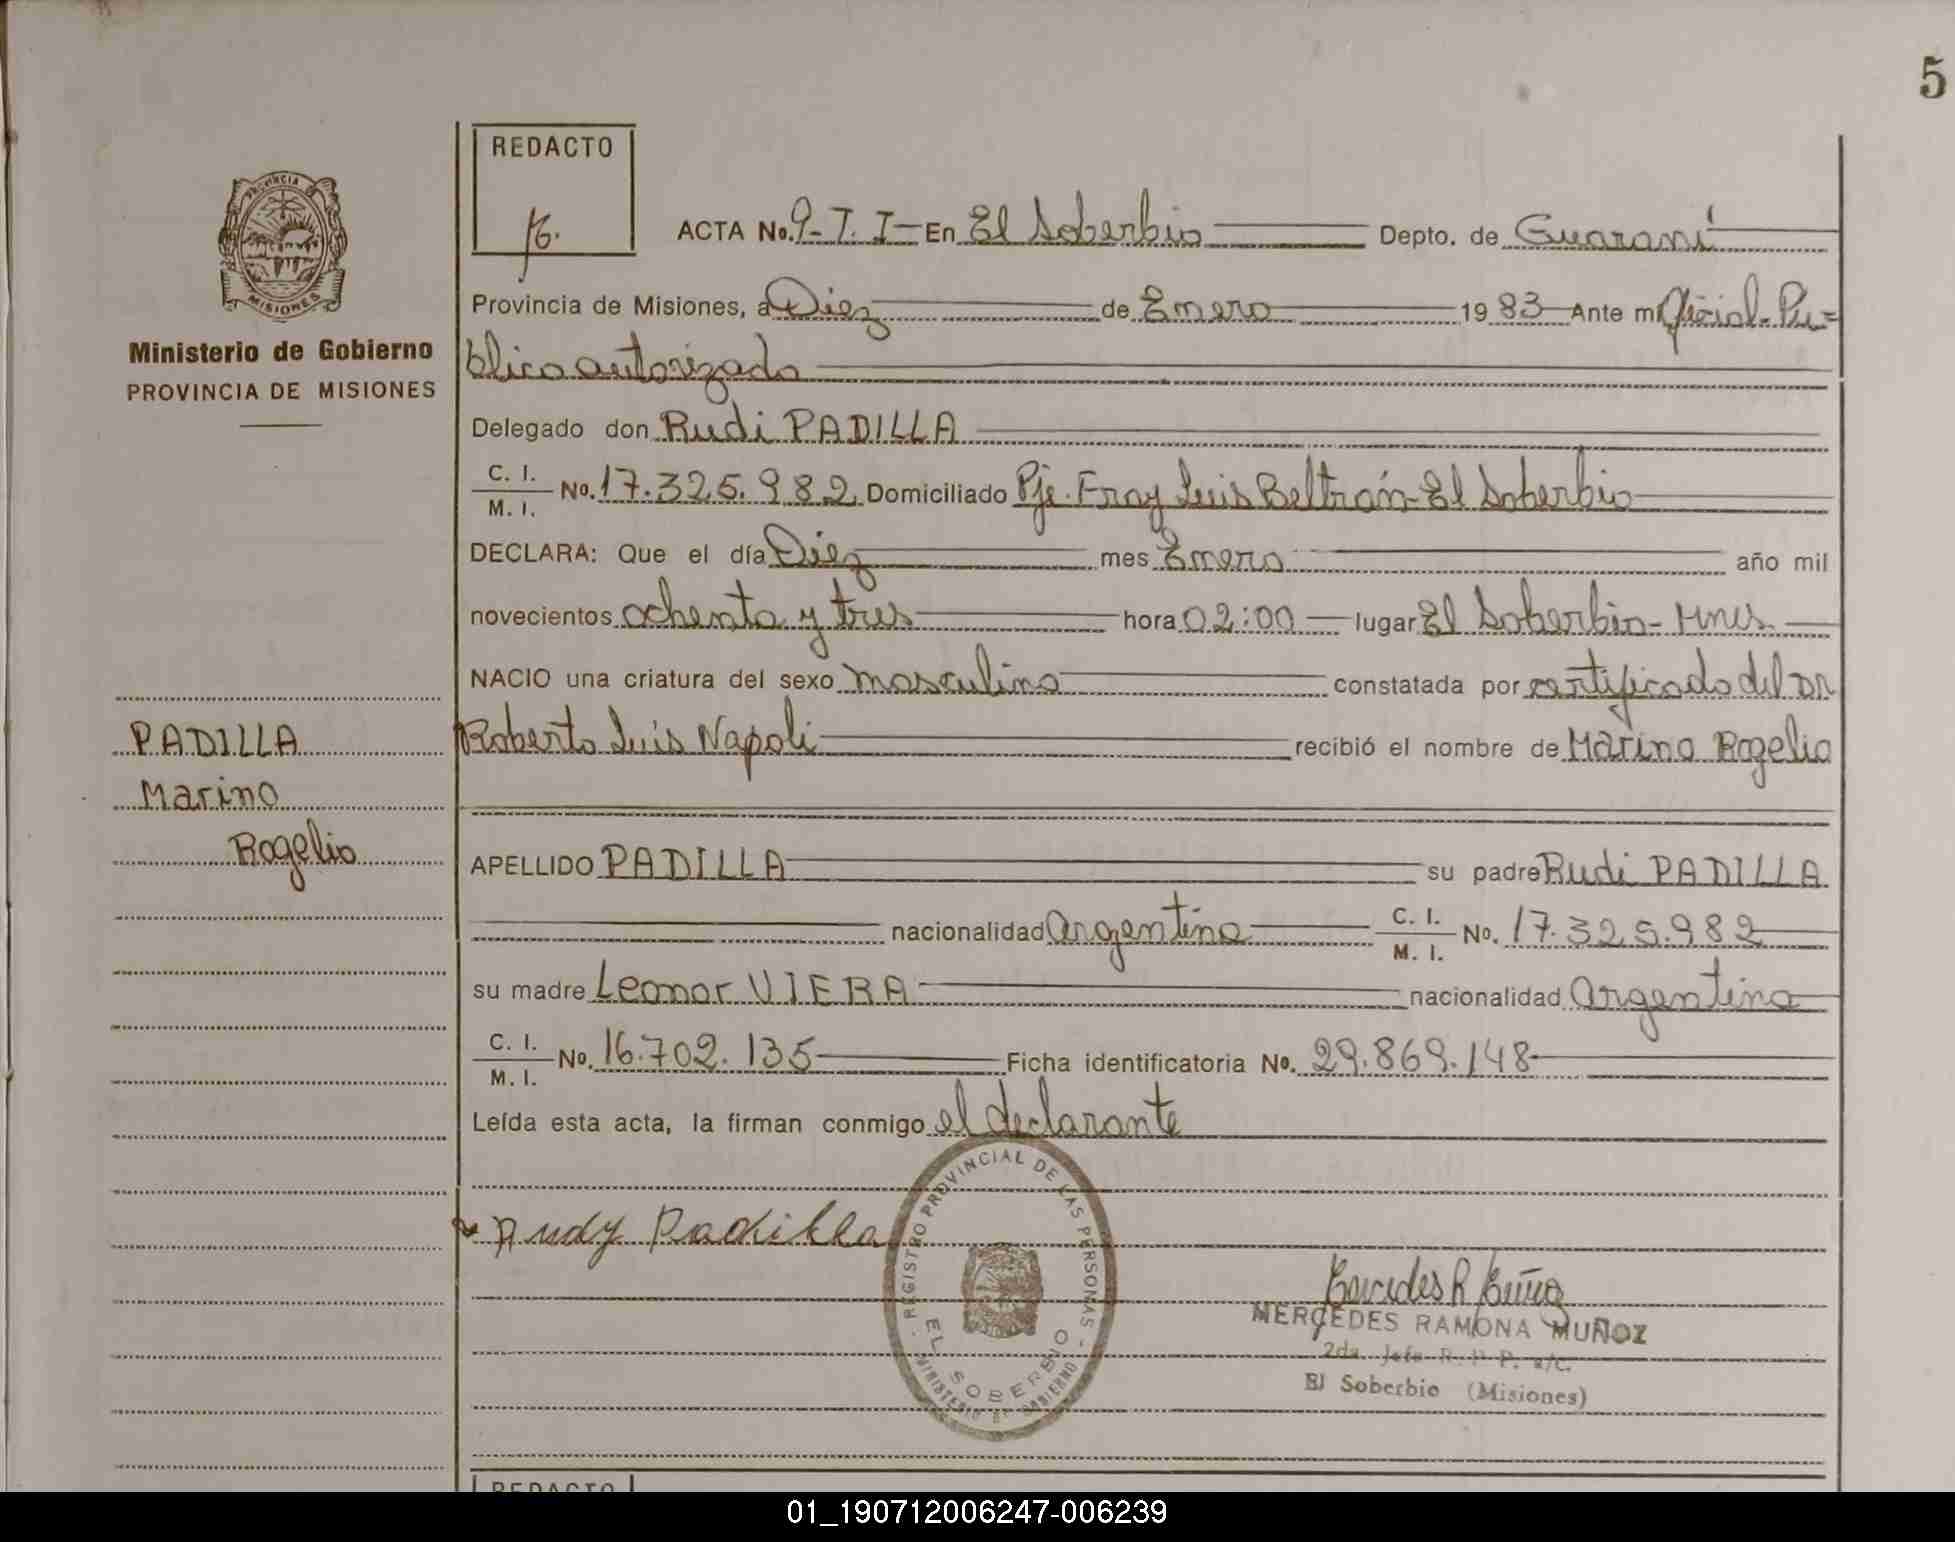 5
REDACTO
PROVINCIA
MISIONES
Ministerio de Gobierno
PROVINCIA DE MISIONES
ACTA No. 9-T. I- En El Soberbio Depto. de Guaraní
Provincia de Misiones, a Diez de Enero 1983 Ante mi Oficial-Pu=
blico autorizado
Delegado don Rudi PADILLA
C. I.
M. I. No. 17.325.982 Domiciliado Pje. Fray Luis Beltrán-El Soberbio
DECLARA: Que el día Diez mes Enero año mil
novecientos ochenta y tres hora 02:00 lugar El Soberbio-Mnes
NACIO una criatura del sexo masculino constatada por certificado del DR
Roberto Luis Napoli recibió el nombre de Marino Rogelio
PADILLA
Marino
Rogelio
APELLIDO PADILLA su padre Rudi PADILLA
nacionalidad Argentina C. I.
M. I. No. 17.325.982
su madre Leonor VIERA nacionalidad Argentina
C. I.
M. I. No. 16.702.135 Ficha identificatoria No. 29.869.148
Leída esta acta, la firman conmigo el declarante
Rudy Padilla
REGISTRO PROVINCIAL DE LAS PERSONAS
EL SOBERBIO
MINISTERIO DE GOBIERNO
MERCEDES RAMONA MUÑOZ
2da. Jefe R. P. P. a/c.
El Soberbio (Misiones)
REDACTO
01_190712006247-006239